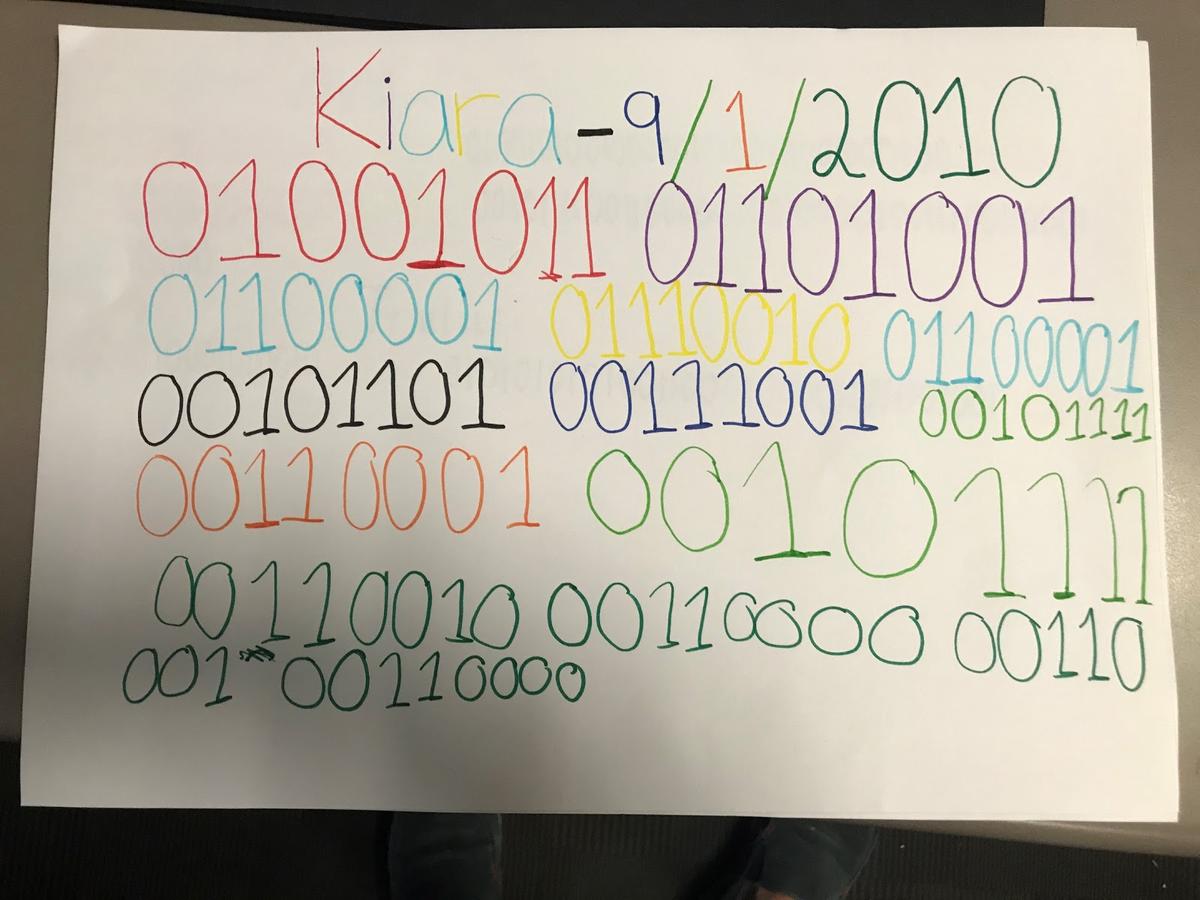 Kiara-9/1/2010
01001011 01101001
01100001 01110010 01100001
00101101 00111001 00101111
00110001 00101111
00110010 00110000 00110
001 00110000